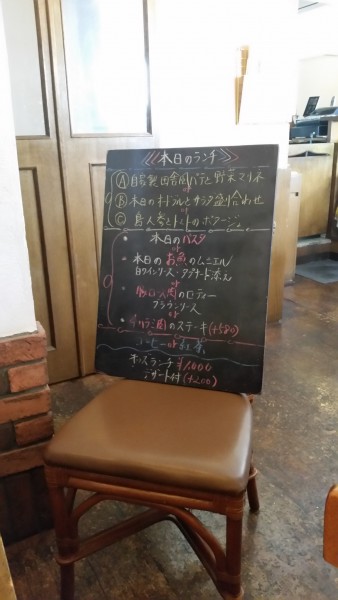 《本日のランチ》
Ⓐ 自家製田舎風パテと野菜マリネ
or
Ⓑ 本日のオードブルとサラダ盛り合わせ
or
Ⓒ 島人参とトマトのポタージュ
• 本日のパスタ
or
• 本日のお魚のムニエル
白ワインソース・タプナード添え
or
• 豚ロース肉のロティー
ソース
or
• イチボ肉のステーキ(+580)
コーヒーor紅茶
ランチ ¥1,000
デザート付 (+200)